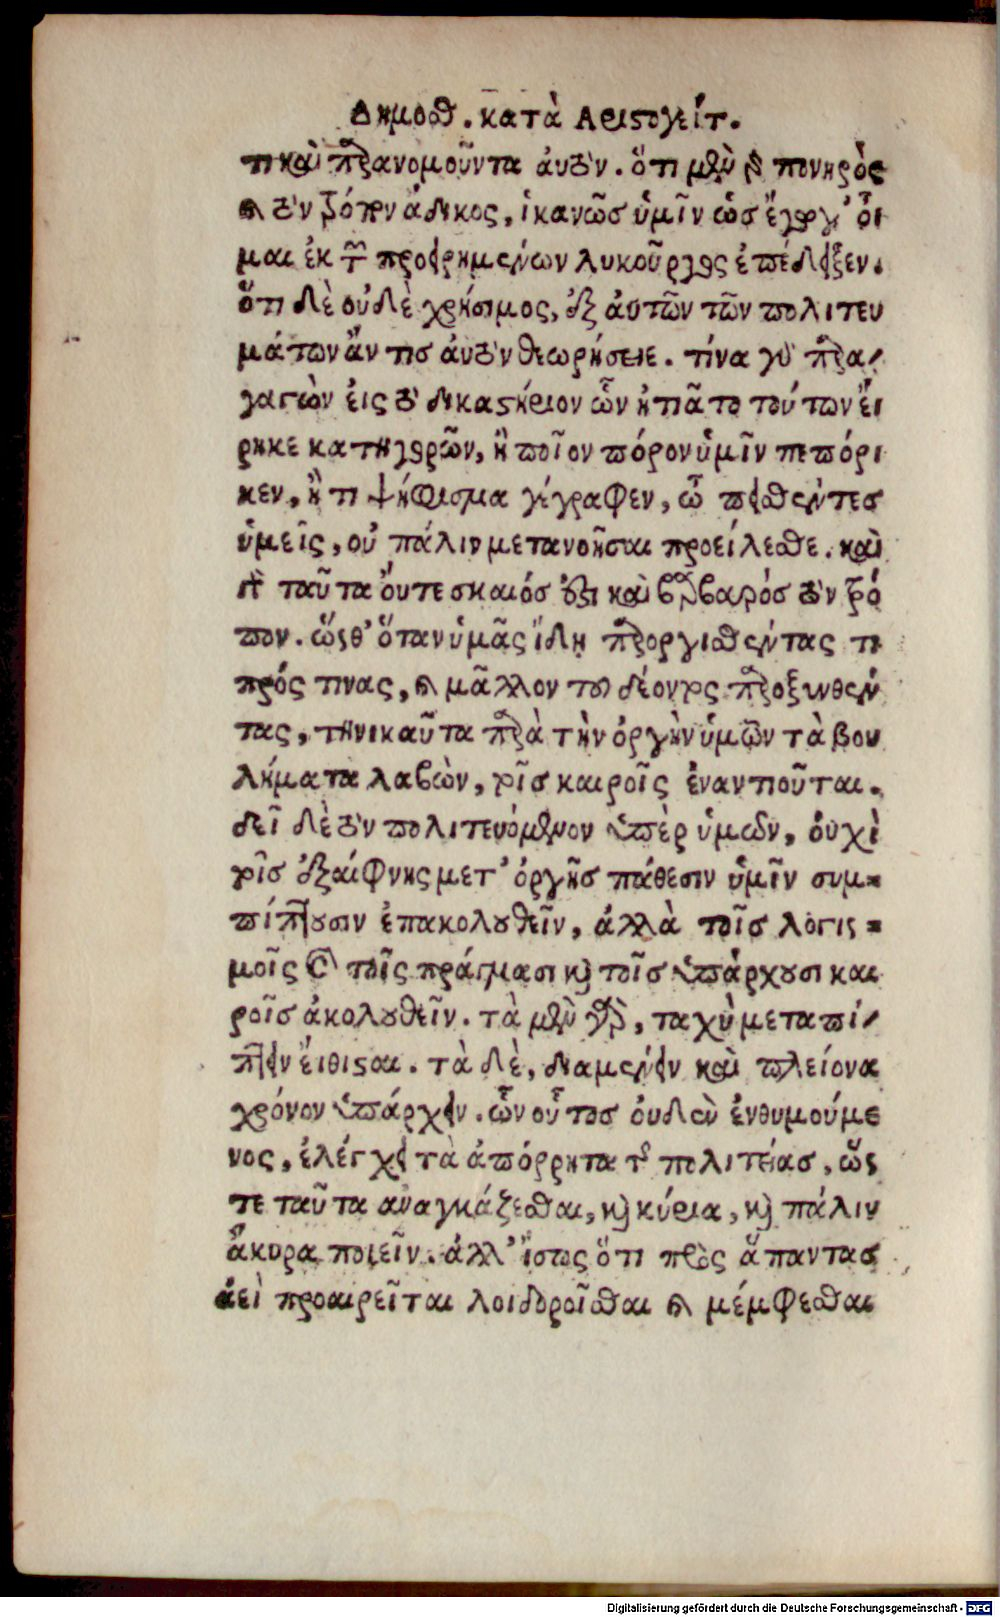 Δημοσθ. κατὰ Αριστογείτ.
τι καὶ παρανομοῦντα ἀυτόν. ὅτι μὲν δὴ πονηρὸς
καὶ τὸν τρόπον ἄδικος, ἱκανῶς ὑμῖν ὥσ ἔγωγ' οἶ
μαι ἐκ τῶν προειρημένων λυκοῦργος ἐπέδειξεν.
ὅτι δὲ οὐδὲ χρήσιμος, ἐξ ἀυτῶν τῶν πολιτευ
μάτων ἄν τισ ἀυτὸν θεωρήσειε. τίνα γὰρ παρα/
γαγὼν εἰς τὸ δικαστήριον ὧν ἠτιᾶτο τούτων εἴ
ρηκε κατηγορῶν, ἢ ποῖον πόρον ὑμῖν πεπόρι
κεν, ἢ τι ψήφισμα γέγραφεν, ᾧ πεισθέντεσ
ὑμεῖς, οὐ πάλιν μετανοῆσαι προείλεσθε. καὶ
ταῦτα ὄυτε σκαιόσ ἐστι καὶ βάρβαρόσ τὸν τρό
πον. ὥσθ' ὅταν ὑμᾶς ἴδη παροργισθέντας τι
πρός τινας, καὶ μᾶλλον τοῦ δέοντος παροξυνθέν
τας, τηνικαῦτα παρὰ τὴν ὀργὴν ὑμῶν τὰ βου
λήματα λαβὼν, τοῖσ καιροῖς ἐναντιοῦται.
δεῖ δὲ τὸν πολιτευόμενον ὑπὲρ ὑμῶν, ὀυχὶ
τοῖσ ἐξαίφνης μετ' ὀργῆσ πάθεσιν ὑμῖν συμ=
πίπτουσιν ἐπακολουθεῖν, ἀλλὰ τοῖσ λογισ=
μοῖς καὶ τοῖς πράγμασι καὶ τοῖσ ὑπάρχουσι και
ροῖσ ἀκολουθεῖν. τὰ μὲν γὰρ, ταχὺ μεταπί/
πτειν ἔιθισται. τὰ δὲ, διαμένειν καὶ πλείονα
χρόνον ὑπάρχειν. ὧν οὗτοσ ὀυδὲν ἐνθυμούμε
νος, ἐλέγχει τὰ ἀπόρρητα τῆς πολιτείασ, ὥσ
τε ταῦτα ἀναγκάζεσθαι, καὶ κύρια, καὶ πάλιν
ἄκυρα ποιεῖν. ἀλλ' ἴσως ὅτι πρὸς ἅπαντασ
ἀεὶ προαιρεῖται λοιδορεῖσθαι καὶ μέμφεσθαι
Digitalisierung gefördert durch die Deutsche Forschungsgemeinschaft - DFG